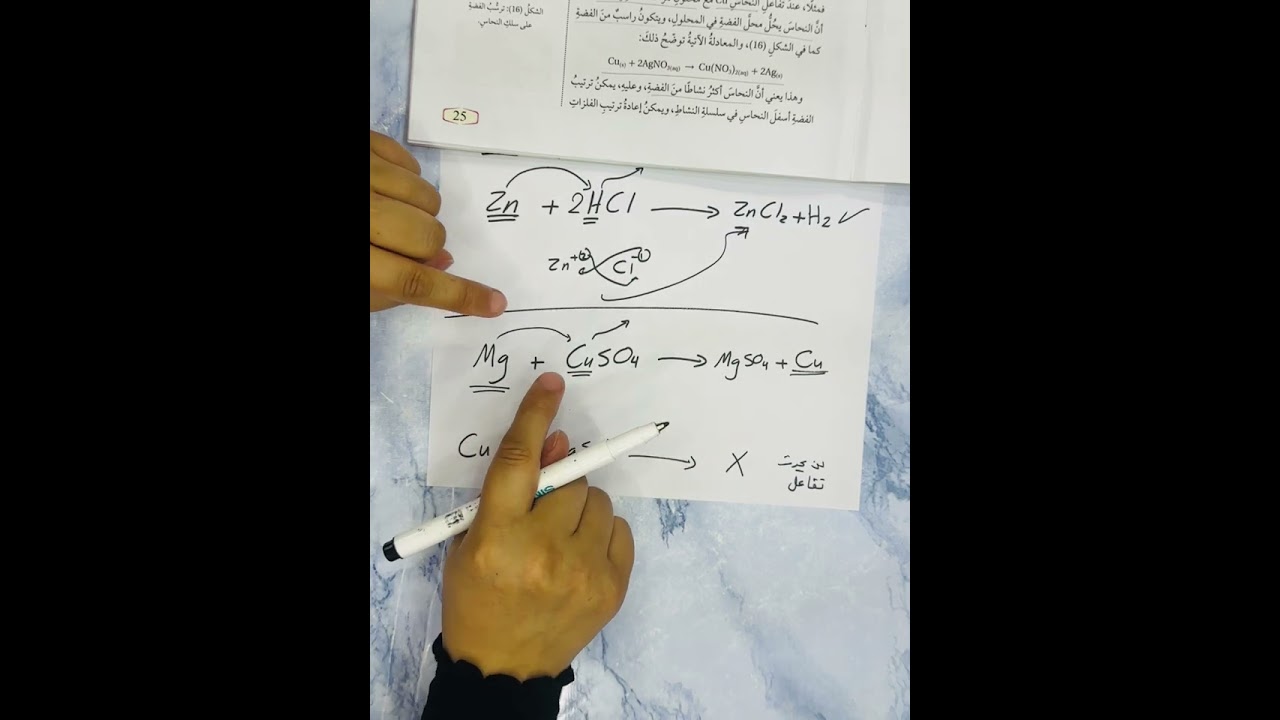 فمثلًا، عند تفاعل النحاس Cu مع محلول
أنَّ النحاسَ يحُلُّ محلَّ الفضةِ في المحلولِ، ويتكونُ راسبٌ منَ الفضةِ
كما في الشكلِ (16)، والمعادلةُ الآتيةُ توضّحُ ذلكَ:
Cu(s) + 2AgNO3(aq) → Cu(NO3)2(aq) + 2Ag(s)
وهذا يعني أنَّ النحاسَ أكثرُ نشاطًا منَ الفضةِ، وعليهِ، يمكنُ ترتيبُ
الفضةِ أسفلَ النحاسِ في سلسلةِ النشاطِ، ويمكنُ إعادةُ ترتيبِ الفلزاتِ
الشكلُ (16): ترسُّبُ الفضةِ
على سلكِ النحاسِ.
25
Zn + 2HCl → ZnCl2 + H2 ✓
Zn+2 Cl-1
Mg + CuSO4 → MgSO4 + Cu
Cu → X لن يحدث
تفاعل